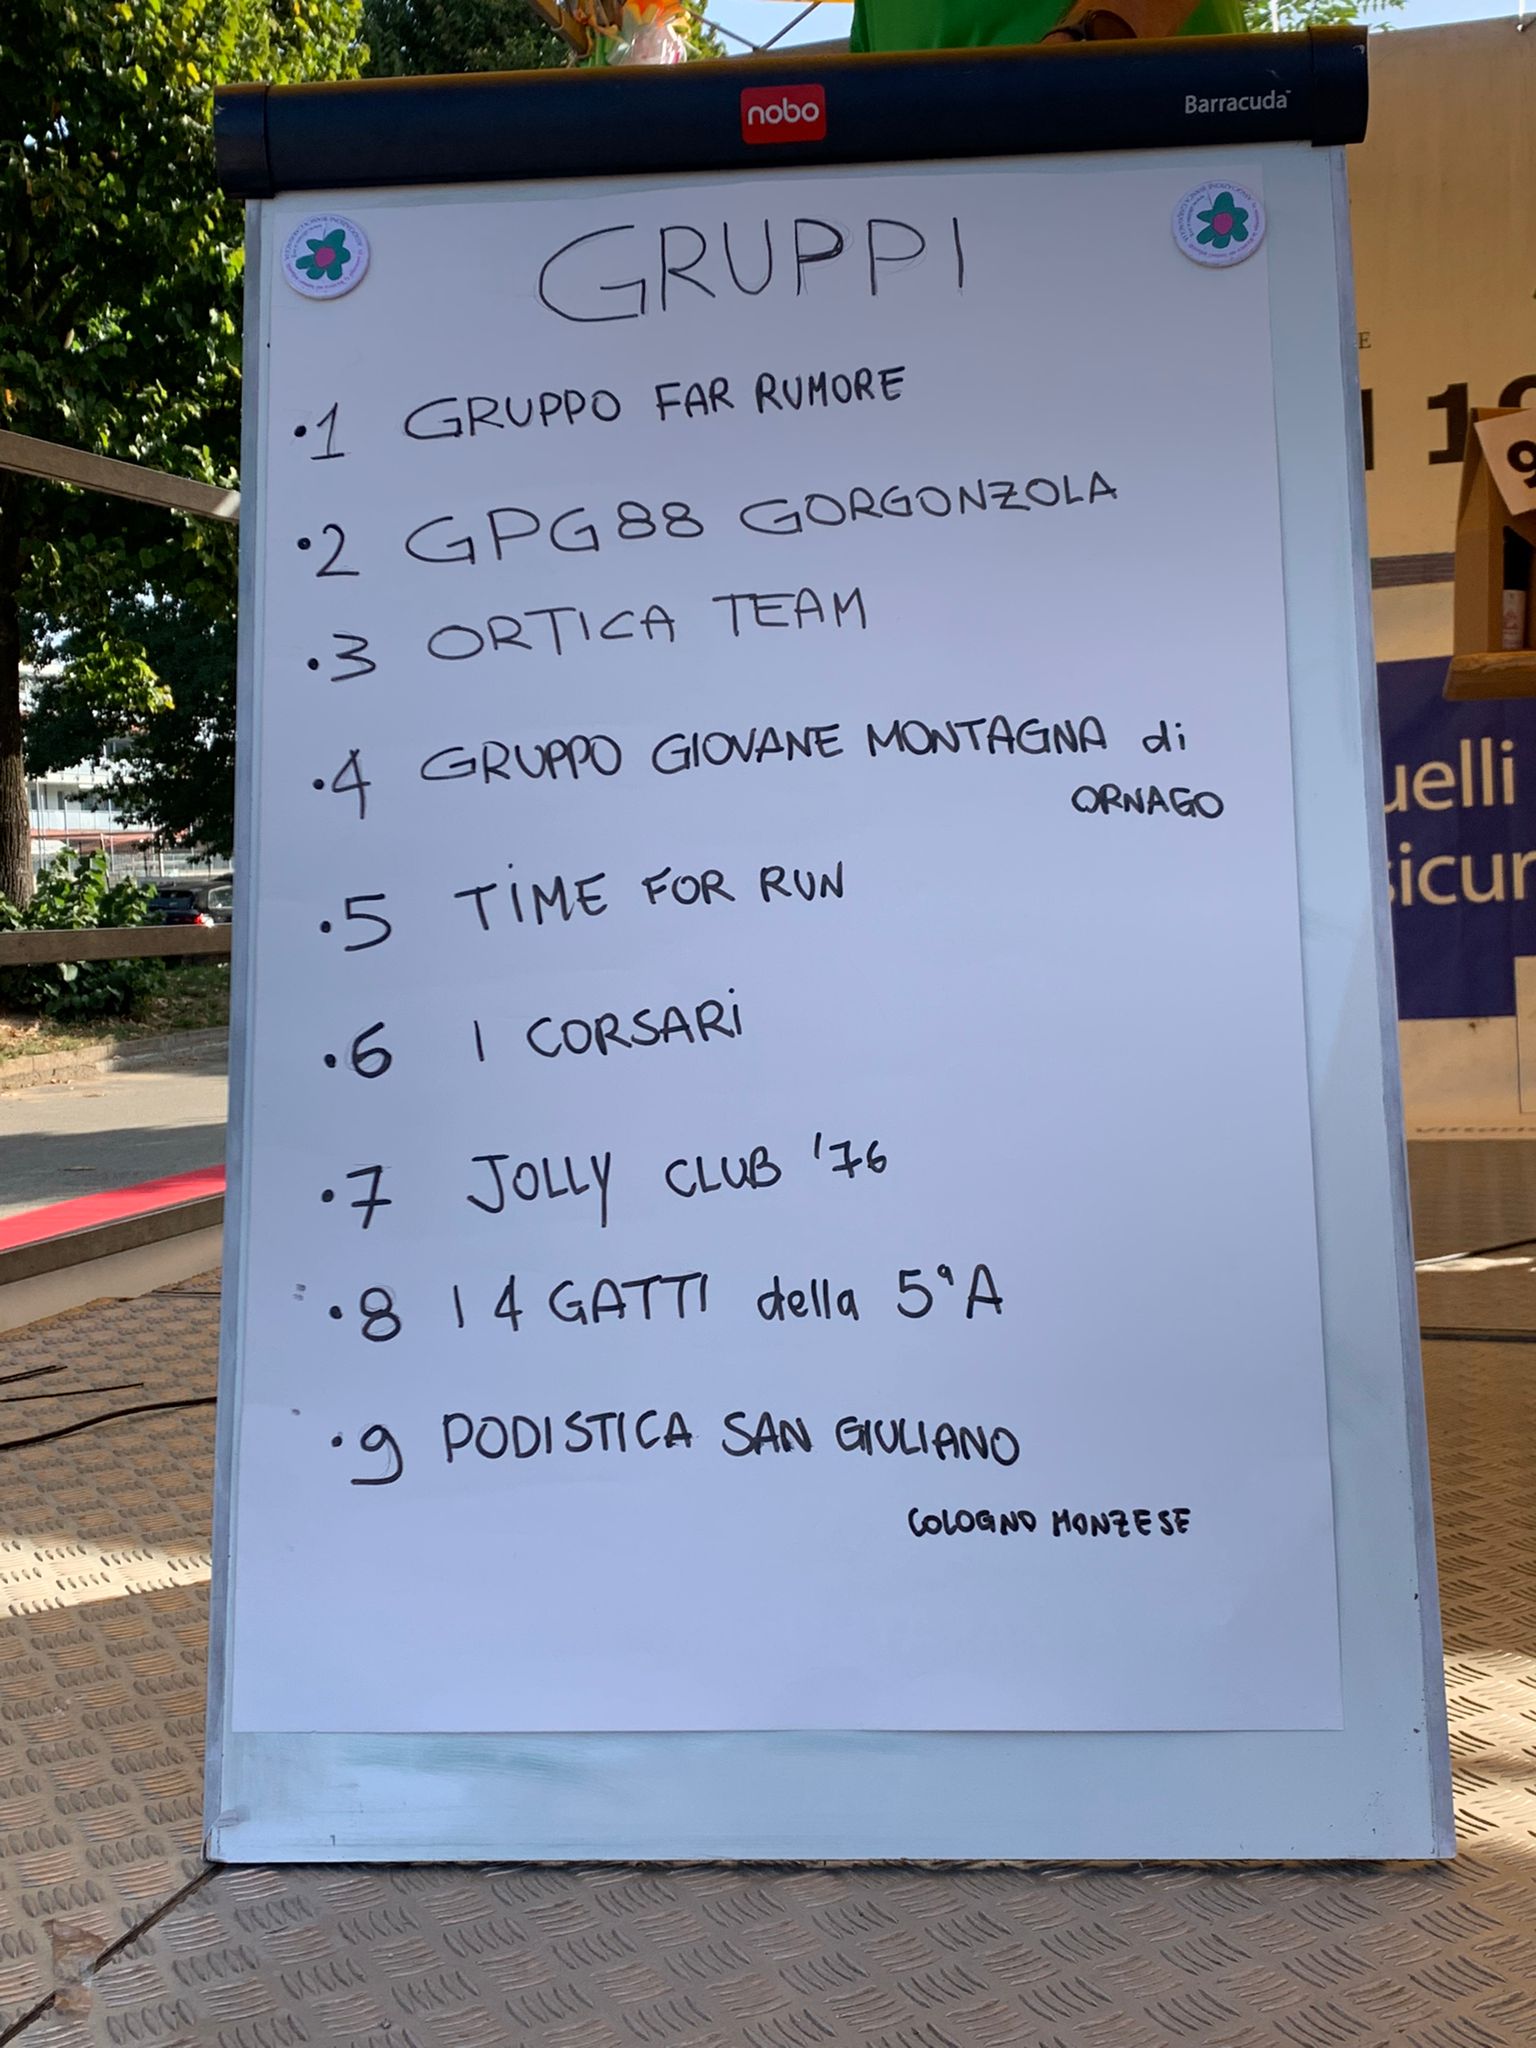 nobo
Barracuda
GRUPPI
•1 GRUPPO FAR RUMORE
•2 GPG88 GORGONZOLA
•3 ORTICA TEAM
•4 GRUPPO GIOVANE MONTAGNA di
ORNAGO
•5 TiME FOR RUN
•6 I CORSARi
•7 JOLLY CLUB '76
•8 I 4 GATTI della 5ª A
•9 PODISTICA SAN GIULIANO
COLOGNO MONZESE
uelli
sicur
9